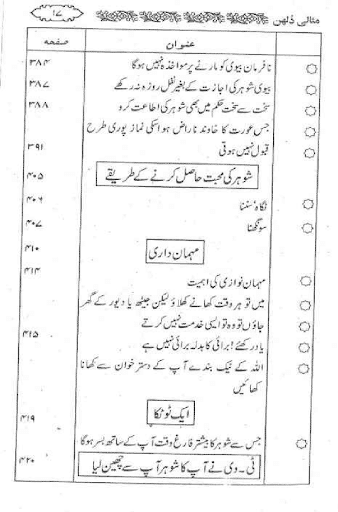 مثالی دُلہن ۱۷
عنوان صفحہ
نافرمان بیوی کو مارنے پر مواخذہ نہیں ہوگا ۳۸۴
بیوی شوہر کی اجازت کے بغیر نفل روزہ نہ رکھے ۳۸۷
سخت سے سخت حکم میں بھی شوہر کی اطاعت کرو ۳۸۸
جس عورت کا خاوند ناراض ہو اسکی نماز پوری طرح
قبول نہیں ہوتی ۳۹۱
شوہر کی محبت حاصل کرنے کے طریقے ۴۰۵
نگاہ سننا ۴۰۶
سونگھنا ۴۰۷
مہمان داری ۴۱۰
مہمان نوازی کی اہمیت ۴۱۴
میں تو ہر وقت کھانے کھلاؤ لیکن جیٹھ یا دیور کے گھر
جاؤں تو وہ تو ایسی خدمت نہیں کرتے
یاد رکھئے! برائی کا بدلہ برائی نہیں ہے ۴۱۵
اللہ کے نیک بندے آپ کے دستر خوان سے کھانا
کھائیں
ایک ٹوٹکا ۴۱۹
جس سے شوہر کا بیشتر فارغ وقت آپ کے ساتھ بسر ہوگا
ٹی۔وی نے آپ کا شوہر آپ سے چھین لیا ۴۲۰